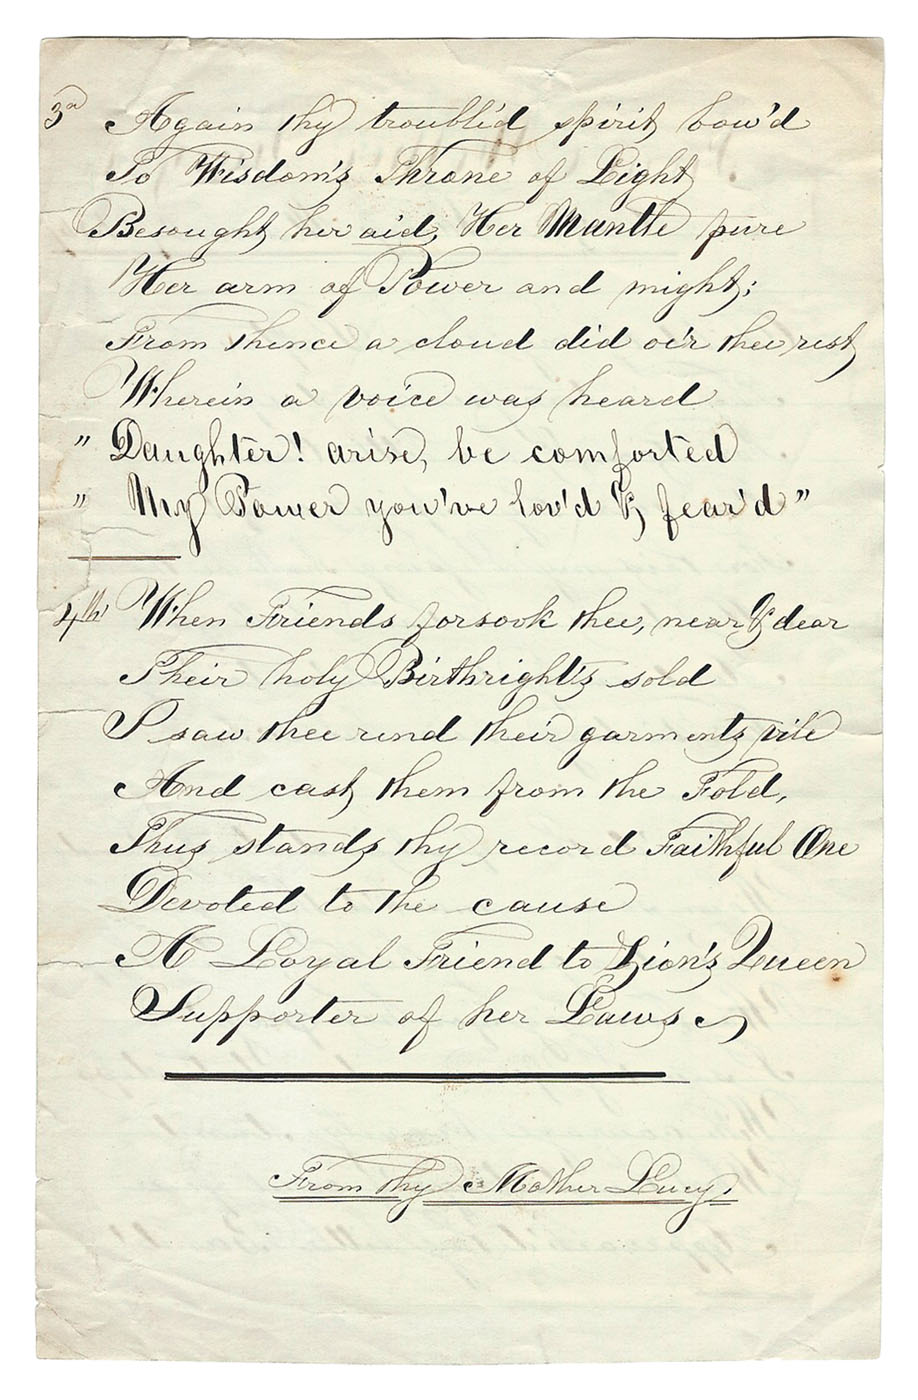 3d Again thy troubl'd spirit bow'd
To Wisdom's Throne of Light
Besought her aid, Her Mantle pure
Her arm of Power and might;
From thence a cloud did o'er thee rest
Wherein a voice was heard
" Daughter! arise, be comforted
" My Power you've lov'd & fear'd"
4th When Friends forsook thee, near & dear
Their holy Birthright's sold
I saw thee rend their garments vile
And cast them from the Fold,
Thus stands thy record Faithful One
Devoted to the cause
A Loyal Friend to Zion's Queen
Supporter of her Laws
From thy Mother Lucy.